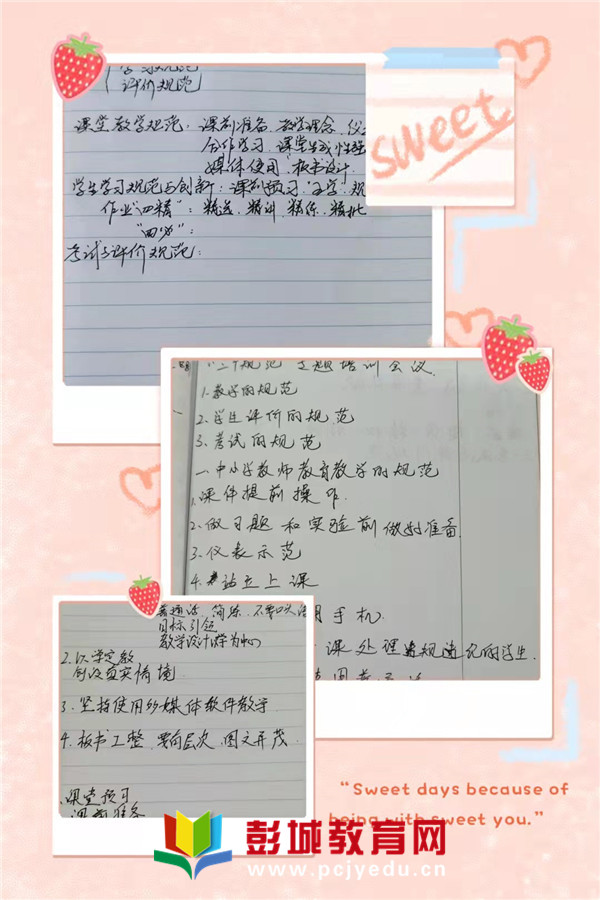 学习规范
评价规范
课堂教学规范：课前准备、教学理念、仪
合作学习、课堂生成
媒体使用、板书设计
学生学习规范与创新：课前预习
作业"四精"：精选、精讲、精练、精批
"四必"：
考试与评价规范：
sweet
规范 主题培训会议
1.教学的规范
2.学生评价的规范
3.考试的规范
一.中小学教师教育教学的规范
1.课件提前操作.
2.做习题和实验前做好准备
3.仪表示范
4.站立上课
用手机.
课处理违规违纪的学生.
普通话、简练、不要口头语
目标引领
教学设计学为中心
2.以学定教
创设真实情境
3.坚持使用多媒体软件教学
4.板书工整、要有层次、图文并茂
课堂预习
课前准备
"Sweet days because of
being with sweet you."
彭城教育网
www.pcjyedu.cn